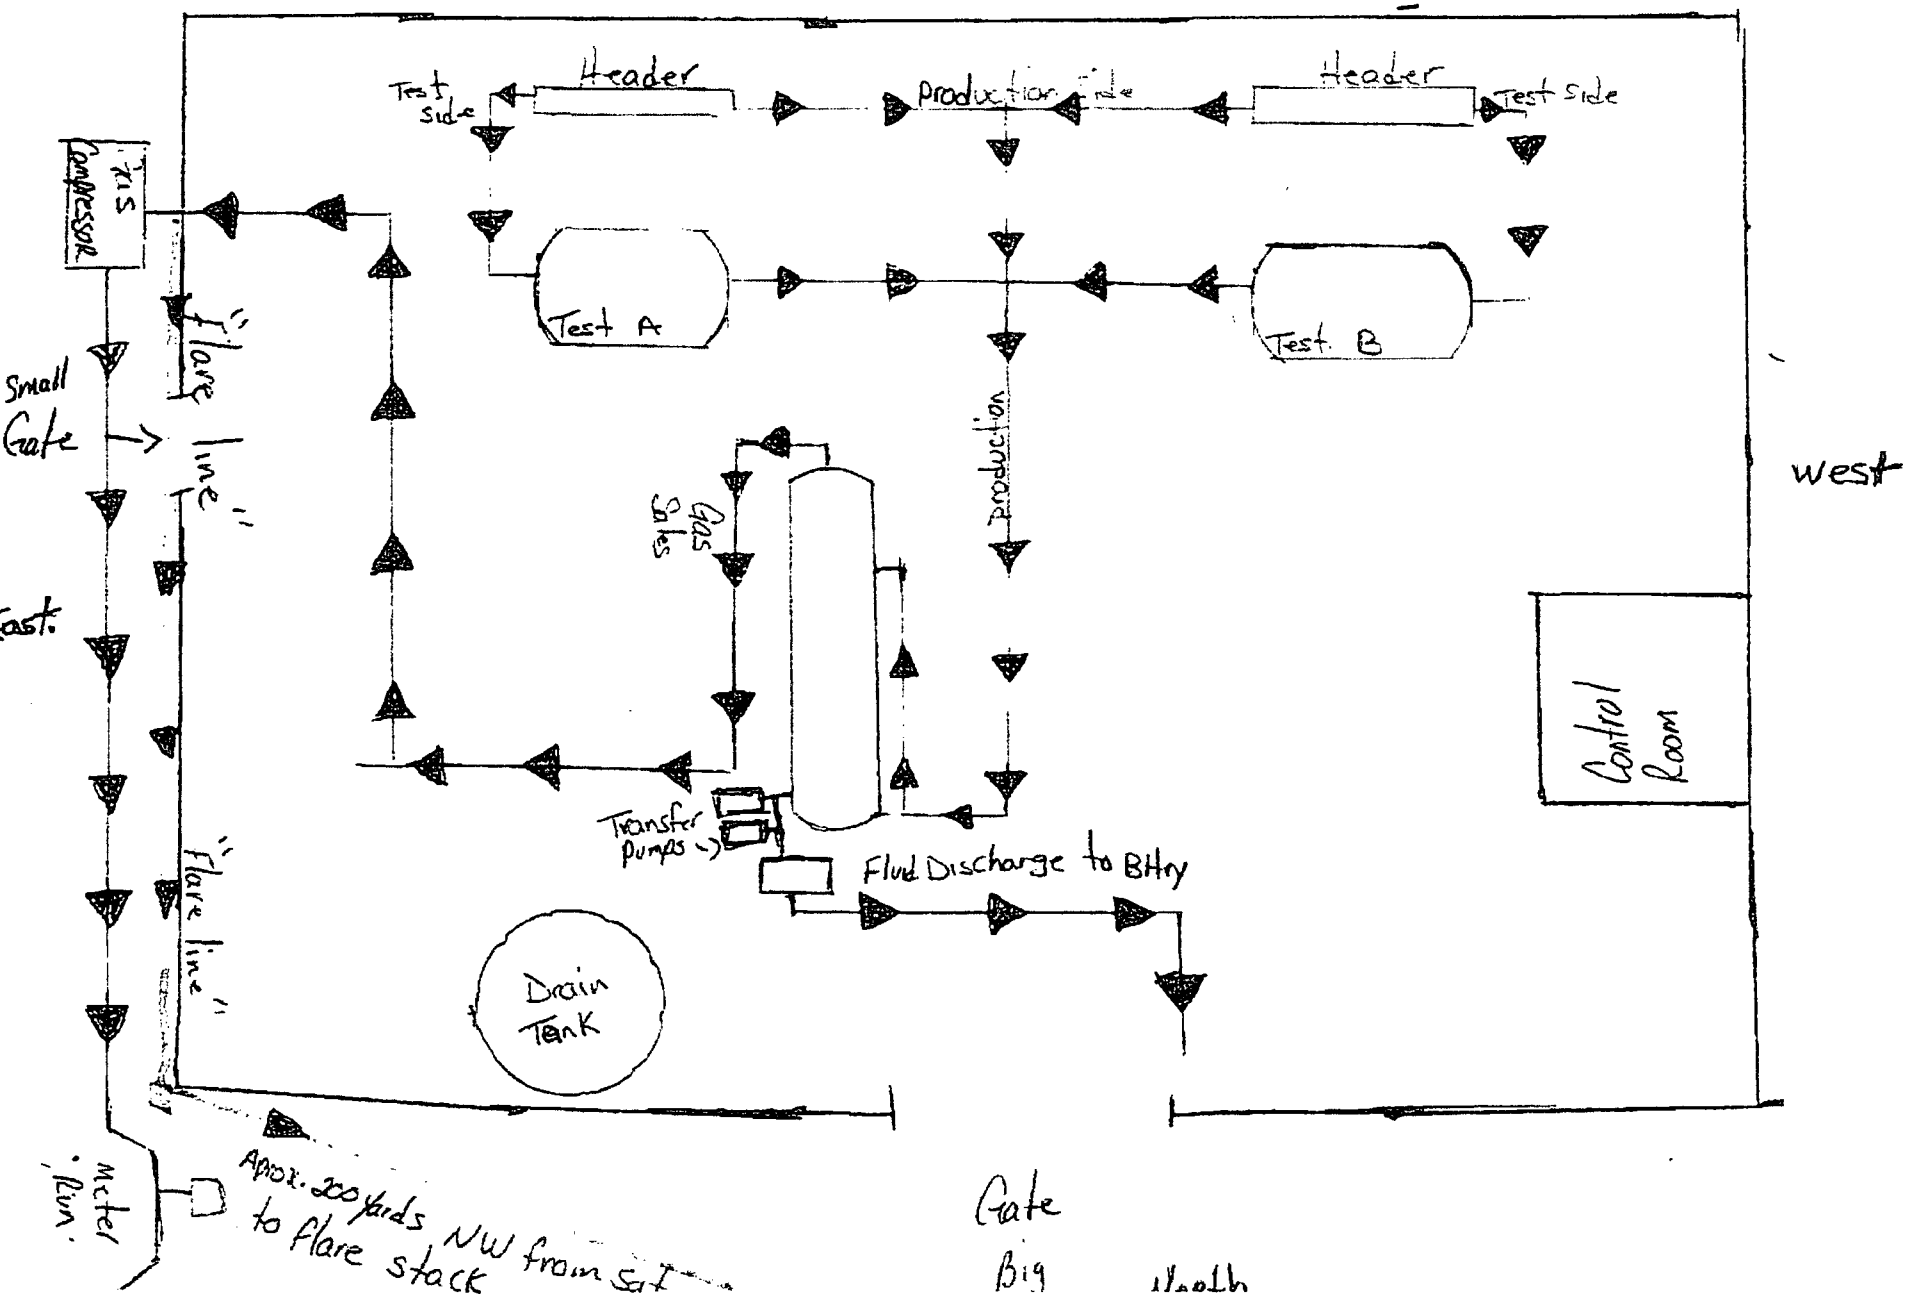 Header
Header
Test
side
Production Side
Test Side
Gas
Compressor
"Flare line"
Small
Gate
Test A
Test. B
production
Gas
Sales
west
East.
Control
Room
Transfer
Pumps
Fluid Discharge to Bttry
"Flare line"
Drain
Tank
Meter
Run.
Aprox. 200 Yards NW from Sat
to flare stack
Gate
Big
North